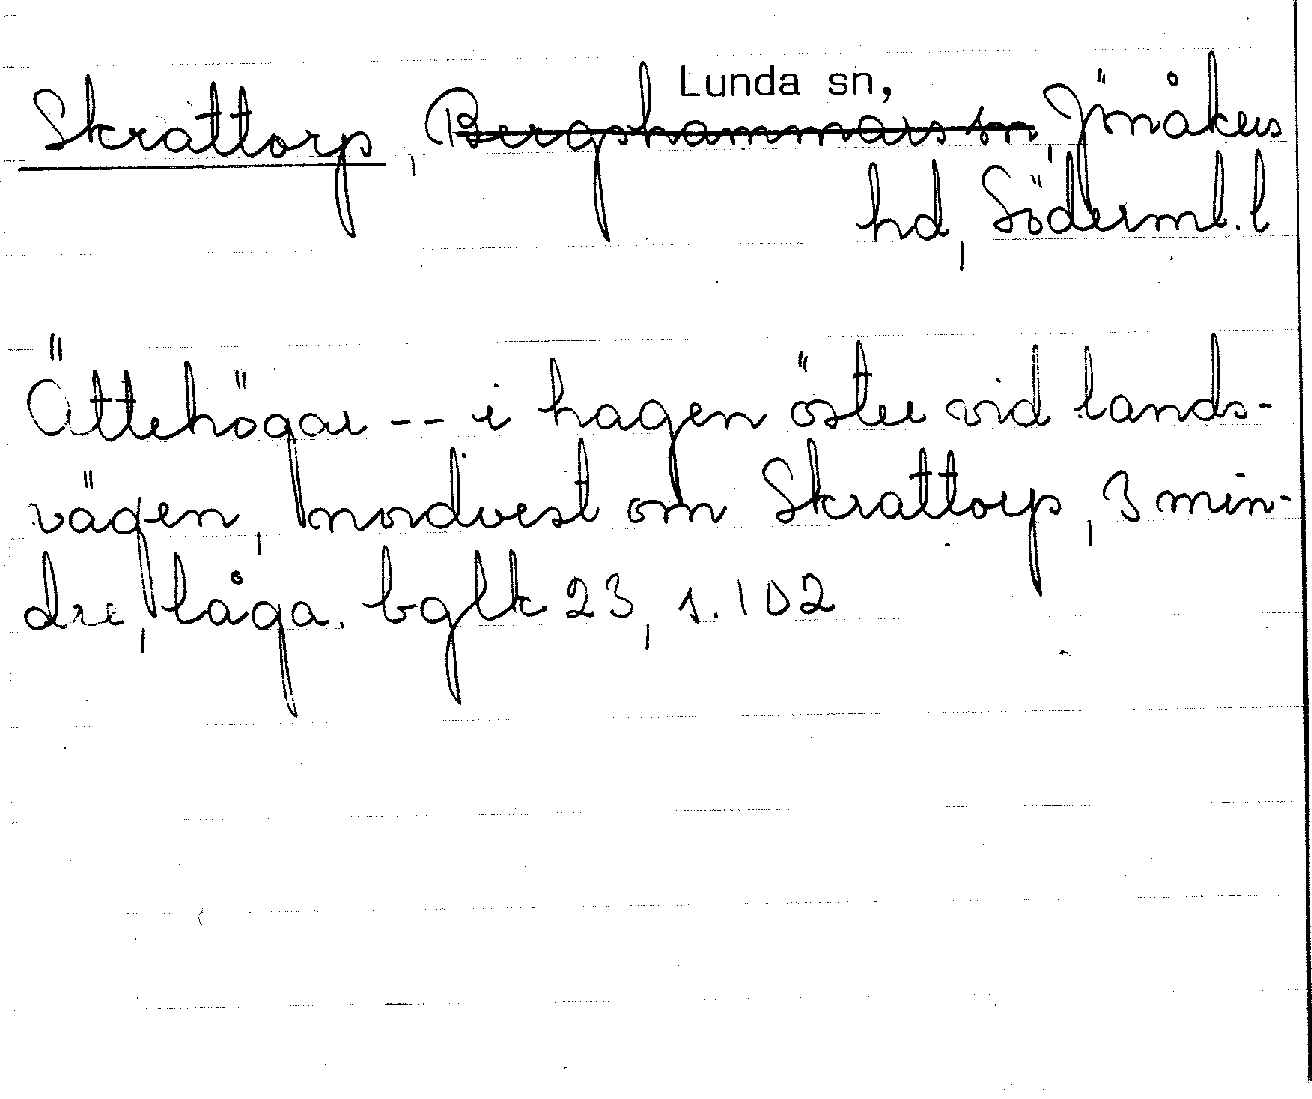 Lunda sn,
Skrattorp, Bergshammars sn, Jönåkers
hd, Söderml. l
Ättehögar -- i hagen öster vid lands-
vägen, nordvest om Skrattorp, 3 min-
dre, låga. bglk 23, s. 102